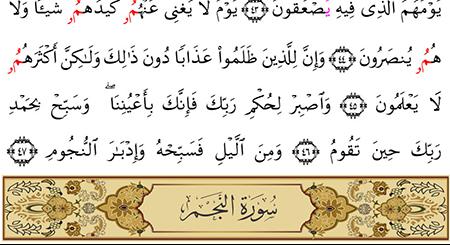 يَوْمَهُمُ ٱلَّذِى فِيهِ يَصْعَقُونَ ﴿٤٣﴾ يَوْمَ لَا يُغْنِى عَنْهُمُۥ كَيْدُهُمُۥ شَيْـًٔا وَلَا
هُمُۥ يُنصَرُونَ ﴿٤٤﴾ وَإِنَّ لِلَّذِينَ ظَلَمُواْ عَذَابًا دُونَ ذَٰلِكَ وَلَٰكِنَّ أَكْثَرَهُمُۥ
لَا يَعْلَمُونَ ﴿٤٥﴾ وَٱصْبِرْ لِحُكْمِ رَبِّكَ فَإِنَّكَ بِأَعْيُنِنَا ۖ وَسَبِّحْ بِحَمْدِ
رَبِّكَ حِينَ تَقُومُ ﴿٤٦﴾ وَمِنَ ٱلَّيْلِ فَسَبِّحْهُ وَإِدْبَٰرَ ٱلنُّجُومِ ﴿٤٧﴾
سُورَةُ النَّجْمِ